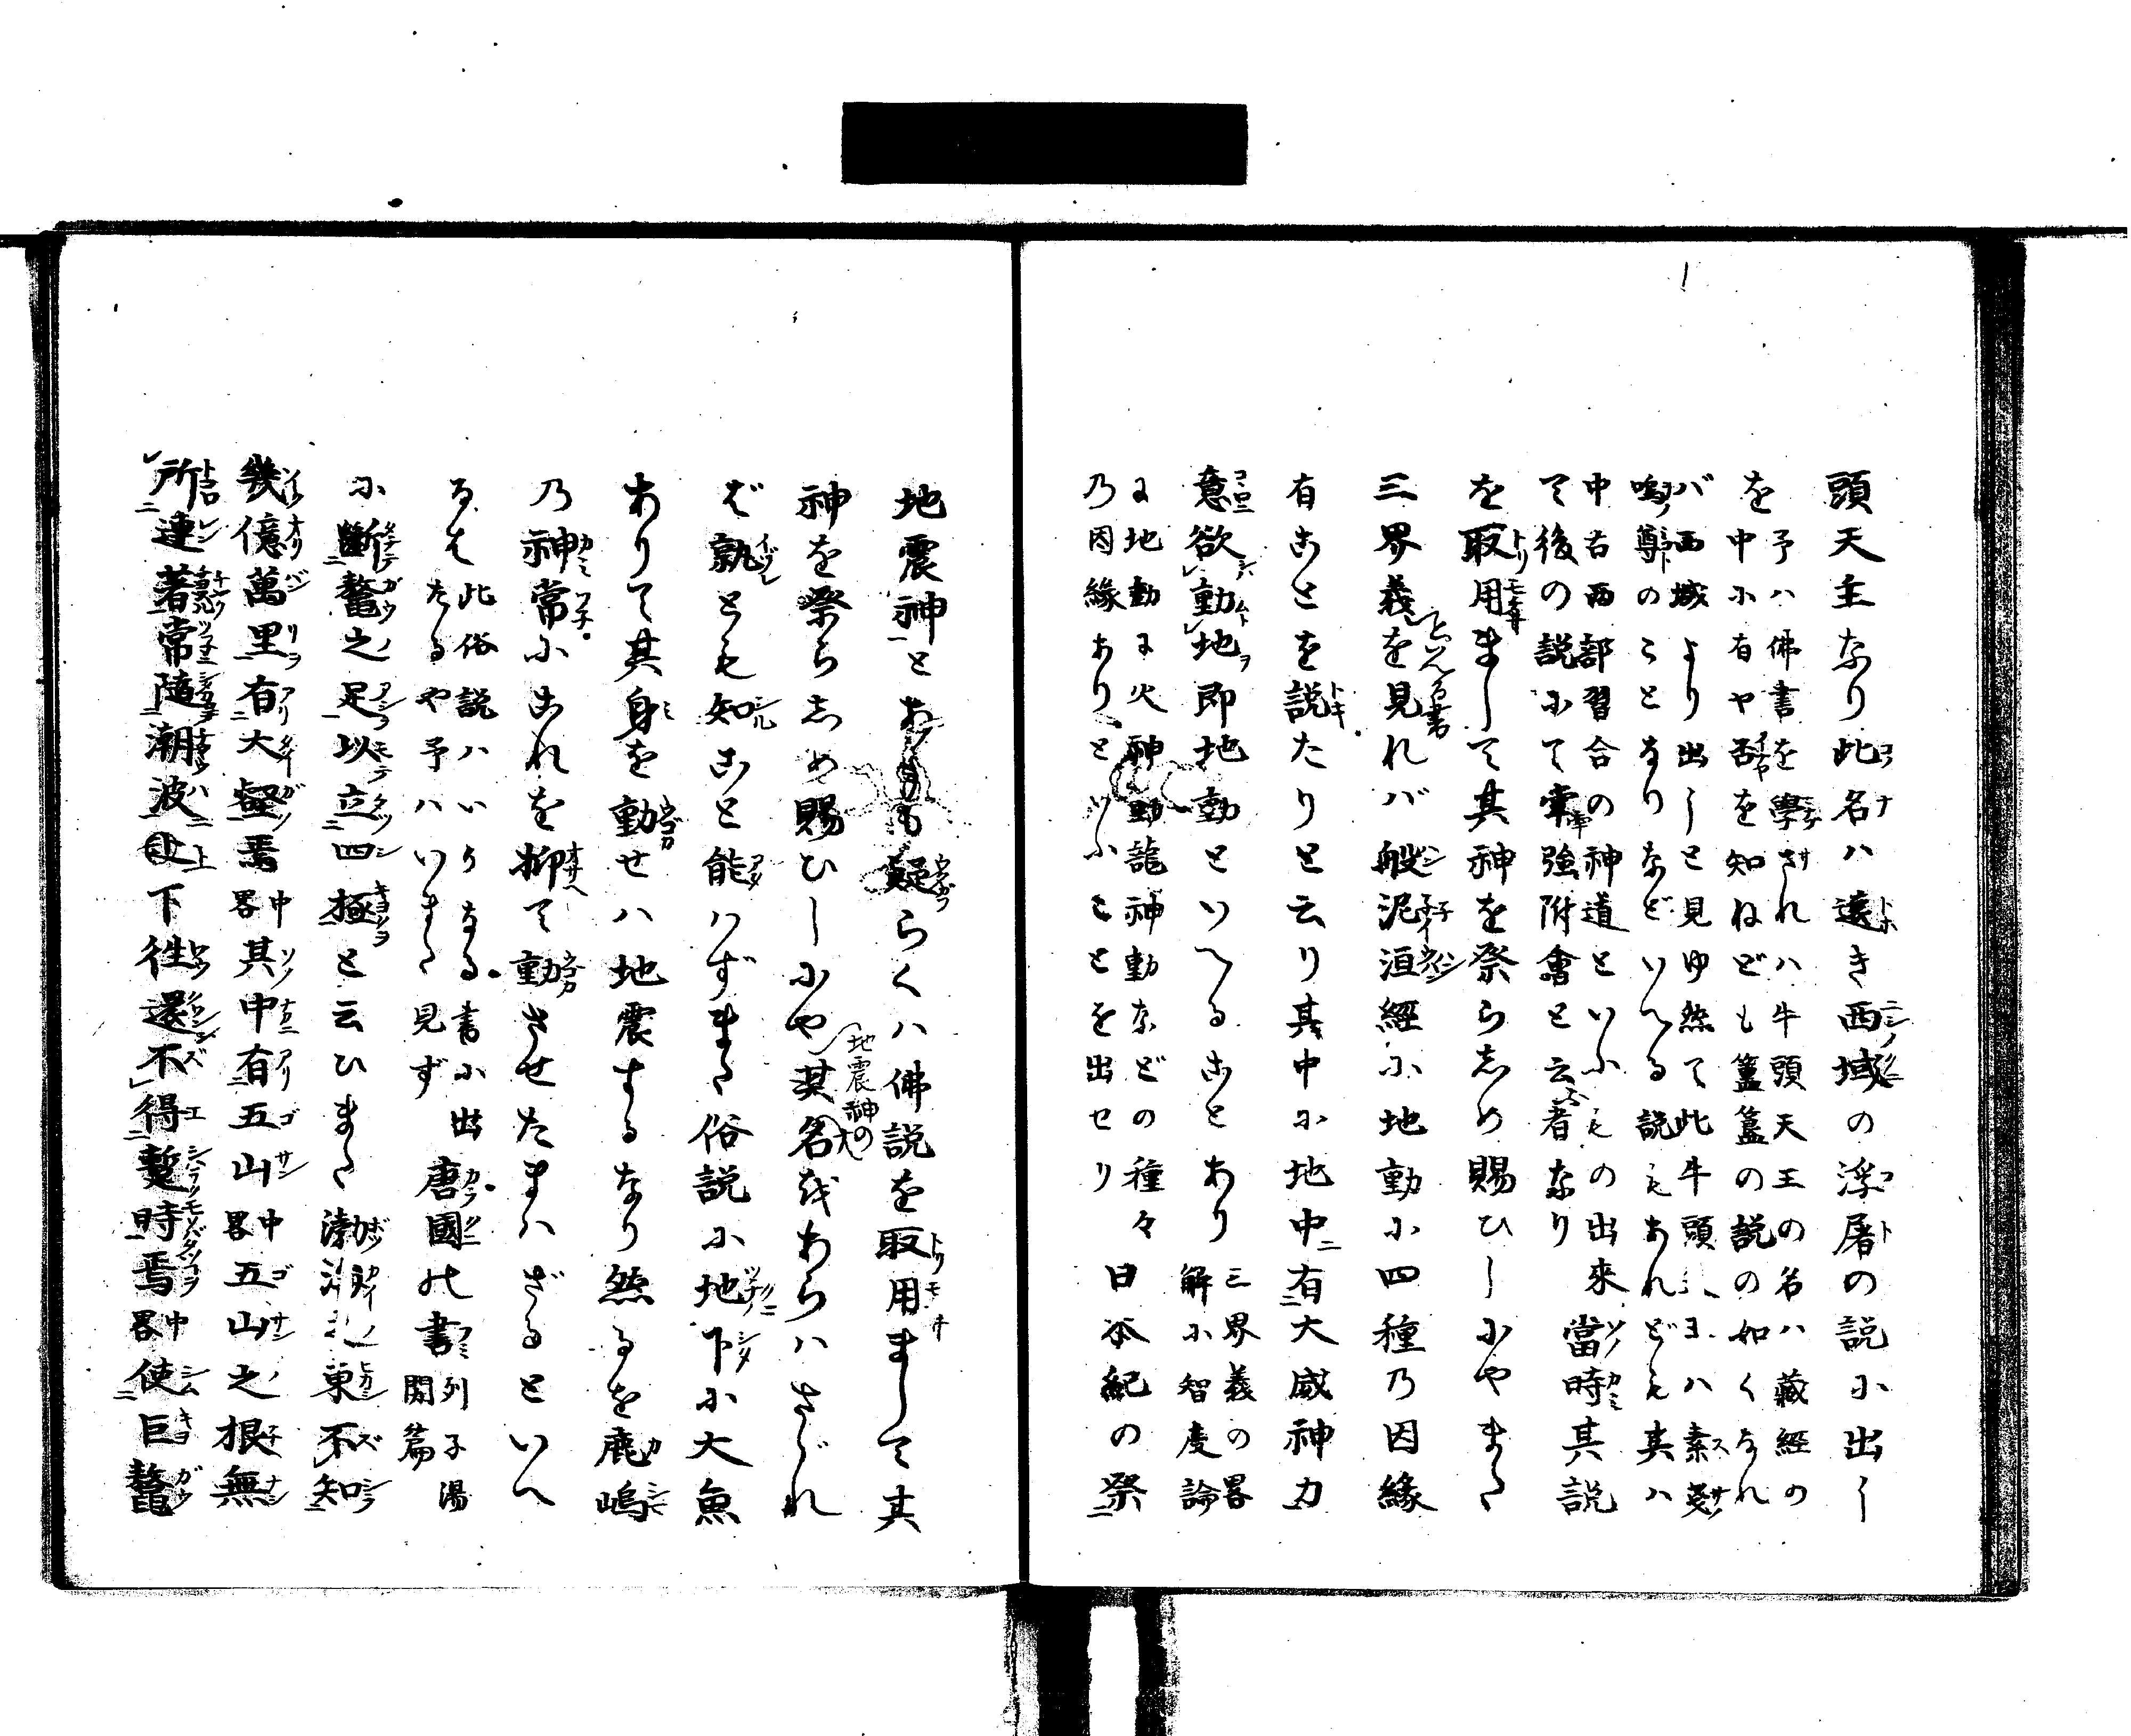 頭天王なり此名ハ遠き西域の浮屠の説に出し
予ハ佛書を學されハ牛頭天王の名ハ藏經の
中に有や否を知ねども簠簋の説の如くなれ
バ西域より出しと見ゆ然て此牛頭ハ素戔
嗚尊のことなりなどいへる説もあれども其ハ
中古両部習合の神道といふもの出來
て後の説にて牽強附會と云者なり
當時其説
を取用まして其神を祭らしめ賜ひしにやまた
三界義といへる書を見れバ般泥洹經に地動に四種乃因縁
有ことを説たりと云り其中に地中有大威神力
意欲動地即地動といへることあり
三界義の畧
解に智度論
に地動に火神動龍神動などの種々
乃因縁ありといふことを出せり
日本紀の祭
地震神とあるも疑らくハ佛説を取用まして其
神を祭らしめ賜ひしにや地震の神の大名をあらハさゞれ
ば孰とも知こと能ハずまた俗説に地下に大魚
ありて其身を動せハ地震するなり然るを鹿嶋
乃神常にこれを抑て動させたまハざるといへ
るは
此俗説ハいかなる書に出
たるや予ハいまた見ず
唐國の書
列子湯
問篇
に斷鼇之足以立四極と云ひまた渤海之東不知
幾億萬里有大壑焉
中畧
其中有五山
中畧
五山之根無
所連著常隨潮波上下徃還不得蹔時焉
中畧
使巨鼇